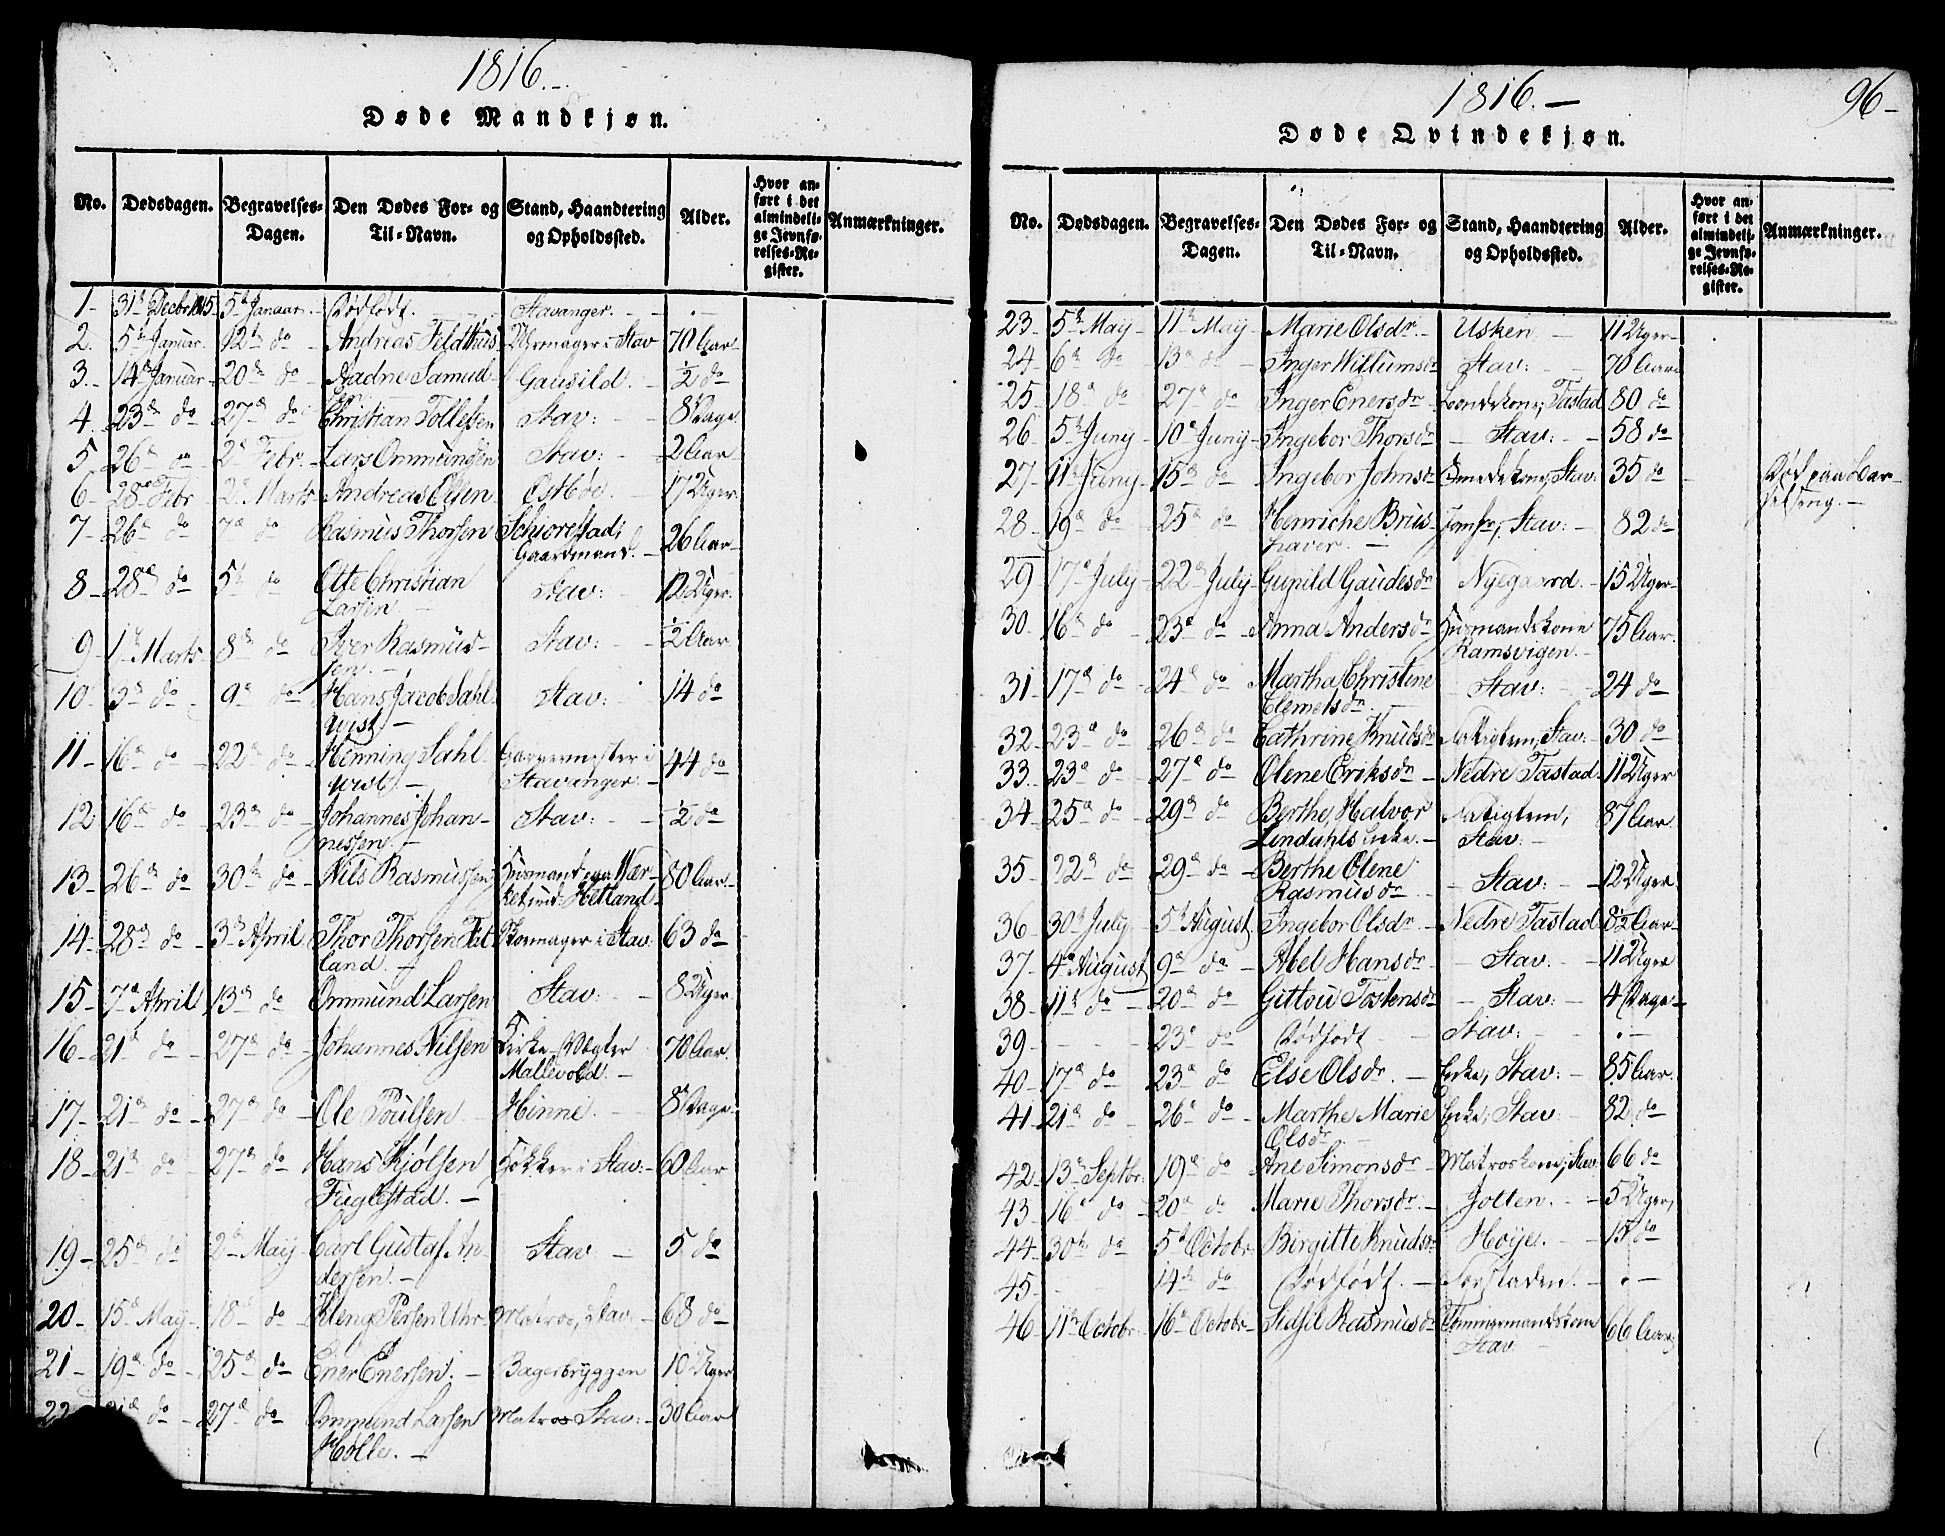 1816.-
Døde Mandkjøn.
No. Dødsdagen. Begravelses-Dagen. Den Dødes For- og Til-Navn. Stand, Haandtering og Opholdssted. Alder. Hvor anført i det almindelige Jevnførelses-Register. Anmærkninger.
1- 31te Decbr 1815- 5te Januar- Dødfødt. Stavanger.
2. 5te Januar. 12te do Andreas Feldthus i Stav 70 Aar
3. 14de Januar 20de do Aadne Samuelsen Gausild. ½ do
4. 23de do 27de do Christian Tollefsen Stav: 8 Dage
5 26de do 2den Febr. Lars Ommundsen Stav: 2 Aar
6- 28de Febr 2den Marts Andreas Olsen Østbøe. 17 Uger
7- 26de do 7de do Rasmus Thorsen Schiorestad; Gaardmand. 26 Aar
8- 28de do 5te do Otte Christian Larsen Stav: 12 Uger
9- 1ste Marts 8de do Iver Rasmussen Stav: ½ Aar
10. 3de do 9de do Hans Jacob Sahlqvist Stav: 14 do
11- 16de do 22de do Henning Sahlqvist Garvermester i Stavanger 44 do
12 16de do 23de do Johannes Johannessen Stav: ½ do
13- 26de do 30te do Nils Rasmussen Huusmand Hetland 80 Aar
14- 28de do 3die April Thor Thorsen Fatland Skomager i Stav: 63 do
15- 7de April 13de do Ommund Larsen Stav: 8 Uger
16- 21de do 27de do Johannes Nilsen Kirke-Vægter Mallevold 70 Aar
17- 21de do 27de do Ole Poulsen Hinne. 8 Dage
18- 21de do 27de do Hans Kjølsen Fuglestad. Høkker i Stav: 60 Aar
19- 25de do 2den Maij Carl Gustaf Andersen. Stav 5 do
20- 15de Maij 18de do Kleng Persen Uhr Matros, Stav: 68 do
21- 19de do 25de do Ener Enersen. Bagerbryggen 10 Uger
22 do 27de do Ommund Larsen Hølle. Matros Stav: 30 Aar
1816.-
96-
Døde Qvindekjøn.
No. Dødsdagen. Begravelses-Dagen. Den Dødes For- og Til-Navn. Stand, Haandtering og Opholdssted. Alder. Hvor anført i det almindelige Jevnførelses-Register. Anmærkninger.
23- 5te Maij 11te Maij Marie Olsdr Usken 11 Uger
24- 6te do 13de do Inger Willumsdr Stav: 70 Aar
25- 18de do 27de do Inger Enersdr Tastad 80 do
26- 5te Junij 10de Junij Ingebor Thorsdr Stav: 58 do
27- 11te Junij 15de do Ingebor Johnsdr Smedekone, Stav: 35 do Død paa Barselseng.
28- 19de do 25de do Henriche Brushaver. Jomfr, Stav: 82 do
29- 17de Julij 22de Julij Gunild Gaudesdr Nyegaard. 15 Uger
30- 16de do 23de do Anna Andersdr Huusmandskone Ramsvigen. 75 Aar
31- 17de do 24de do Martha Christine Clemetsdr. Stav: 24 do
32- 23de do 26de do Cathrine Knudsdr Fattiglem, Stav: 30 do
33- 23de do 27de do Olene Eriksdr Nedre Tastad 11 Uger
34- 25de do 29de do Berthe, Halvor Lindahls Enke. Fattiglem, Stav: 87 Aar
35 22de do 29de do Berthe Olene Rasmusdr Stav: 12 Uger
36- 30te July 5te August Ingebor Olsdr Nedre Tastad 8½ Aar
37- 4de August 9de do Abel Hansdr Stav. 11 Uger
38- 11te do 20de do Gittou Tostensdr Stav: 4 Dage
39- 23de do Dødfødt Stav:
40- 17de do 23de do Else Olsdr. Enke, Stav: 85 Aar
41- 21de do 26de do Marthe Marie Olsdr Enke, Stav: 82 do
42- 13de Septbr 19de do Ane Simonsdr Matroskone, Stav 66 do
43- 16de do 20de do Marie Thorsdr Jotten. 5 Uger,
44- 30te do 5te Octobr Birgitte Knudsdr Høije. 15 do
45- 14de do Dødfødt. Torstaden.
46- 11te Octobr 16de Octobr Sidsil Rasmusdr Tømmermandskone Stav 66 Aar,